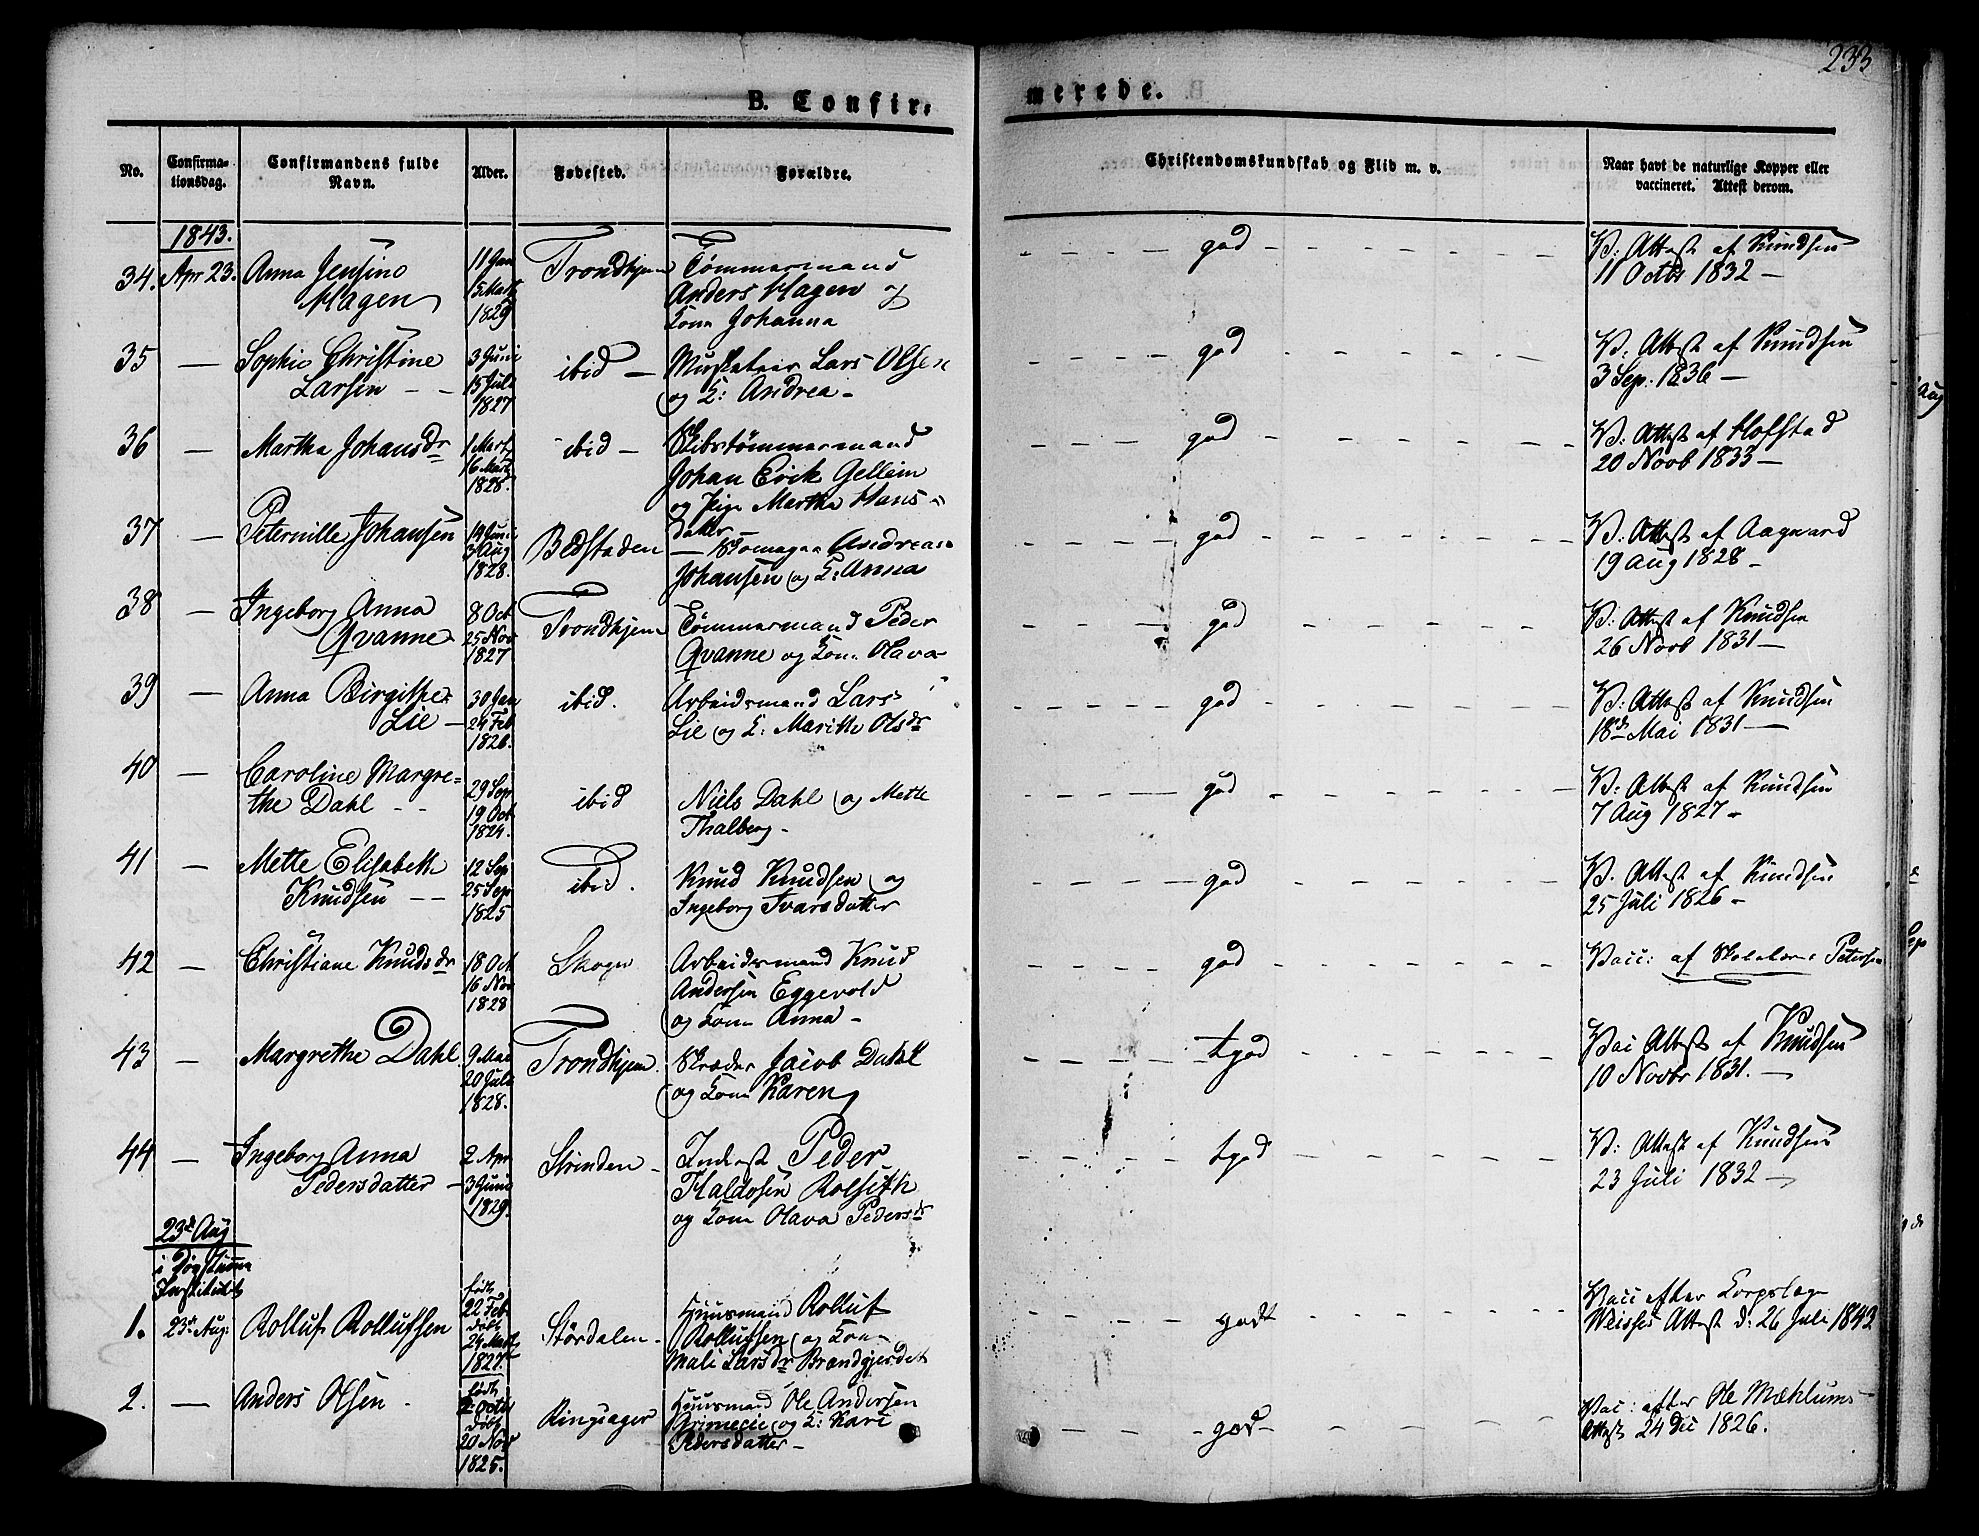 233
B. Confir=
merede.
No.
Confirma-
tionsdag.
Confirmandens fulde
Navn.
Alder.
Fødested.
Forældre.
Christendomskundskab og Flid m. v.
Naar havt de naturlige Kopper eller
vaccineret. Attest derom.
1843.
34. Apr 23. Anna Jensine
Hagen
11 Jan
15 Mart
1829
Trondhjem
Tømmermand
Anders Hagen og
Kone Johanna
god
V: Attest af Knudsen
11 Octbr 1832 —
35 — Sophie Christine
Larsen
3 Juni
15 Juli
1827
ibid —
Musketeer Lars Olsen
og K: Andrea -
god
V. Attest af Knudsen
3 Sep. 1836 —
36 — Martha Johansdr
1 Mart
16 Mart
1828.
ibid —
Skibstømmermand
Johan Erik Gellein
og Pige Martha Hans-
datter
god
V: Attest af Hofstad
20 Novb 1833 —
37 — Peternille Johansen
14 Juni
3 Aug
1828.
Bedstaden
Skomager Andreas
Johansen og K: Anna
god
V. Attest af Aagaard
19 Aug 1828 -
38 — Ingeborg Anna
Qvanne
8 Oct
25 Nov
1827
Trondhjem
Tømmermand Peder
Qvanne og Kone Olava
god
V: Attest af Knudsen
26 Novb 1831 —
39 — Anna Birgithe
Lie —
30 Jan
24 Feb
1826.
ibid.
Arbeidsmand Lars
Lie og K: Marithe Olsdr
god
V: Attest af Knudsen
18de Mai 1831 —
40 — Caroline Margre=
the Dahl - -
29 Sep
19 Oct
1824.
ibid
Niels Dahl og Mette
Thalberg -
god
V: Attest af Knudsen
7 Aug 1827 -
41 — Mette Elisabeth
Knudsen - -
12 Sep
25 Sep
1825
ibid.
Knud Knudsen og
Ingeborg Ivarsdatter
god
V. Attest af Knudsen
25 Juli 1826 -
42 — Christiane Knudsdr
18 Oct
16 Nov
1828
Skogn
Arbeidsmand Knud
Andersen Eggevold
og Kone Anna -
god
Vacc: af Petersen
43 — Margrethe Dahl
9 Mai
20 Juli
1828.
Trondhjem.
Skræder Jacob Dahl
og Kone Karen
tgod
Vac Attest af Knudsen
10 Novbr 1831. —
44 — Ingeborg Anna
Pedersdatter —
2 Apr
3 Juni
1829.
Strinden -
Inderst Peder
Haldosen Rolseth
og Kone Olava Pedersdr
tgod
V: Attest af Knudsen
23 Juli 1832 —
23de Aug
i Døvstumme
Institutet
1. 23de Aug. Rolluf Rollufsen
født
22 Feb
døbt
24 Mart
1827.
Størdalen -
Huusmand Rolluf
Rollufsen og Kone
Mali Larsdr Brandgjerdet
godt
Vacc efter Corpslæge
Weisses Attest d: 26 Juli 1842
2. — Anders Olsen -
født
2 Octbr
døbt
20 Nov
1825.
Ringsager
Huusmand Ole Andersen
og K: Kari
Pedersdatter -
god -
Vac: efter Ole Mæhlums
Attest 24 Dec 1826.